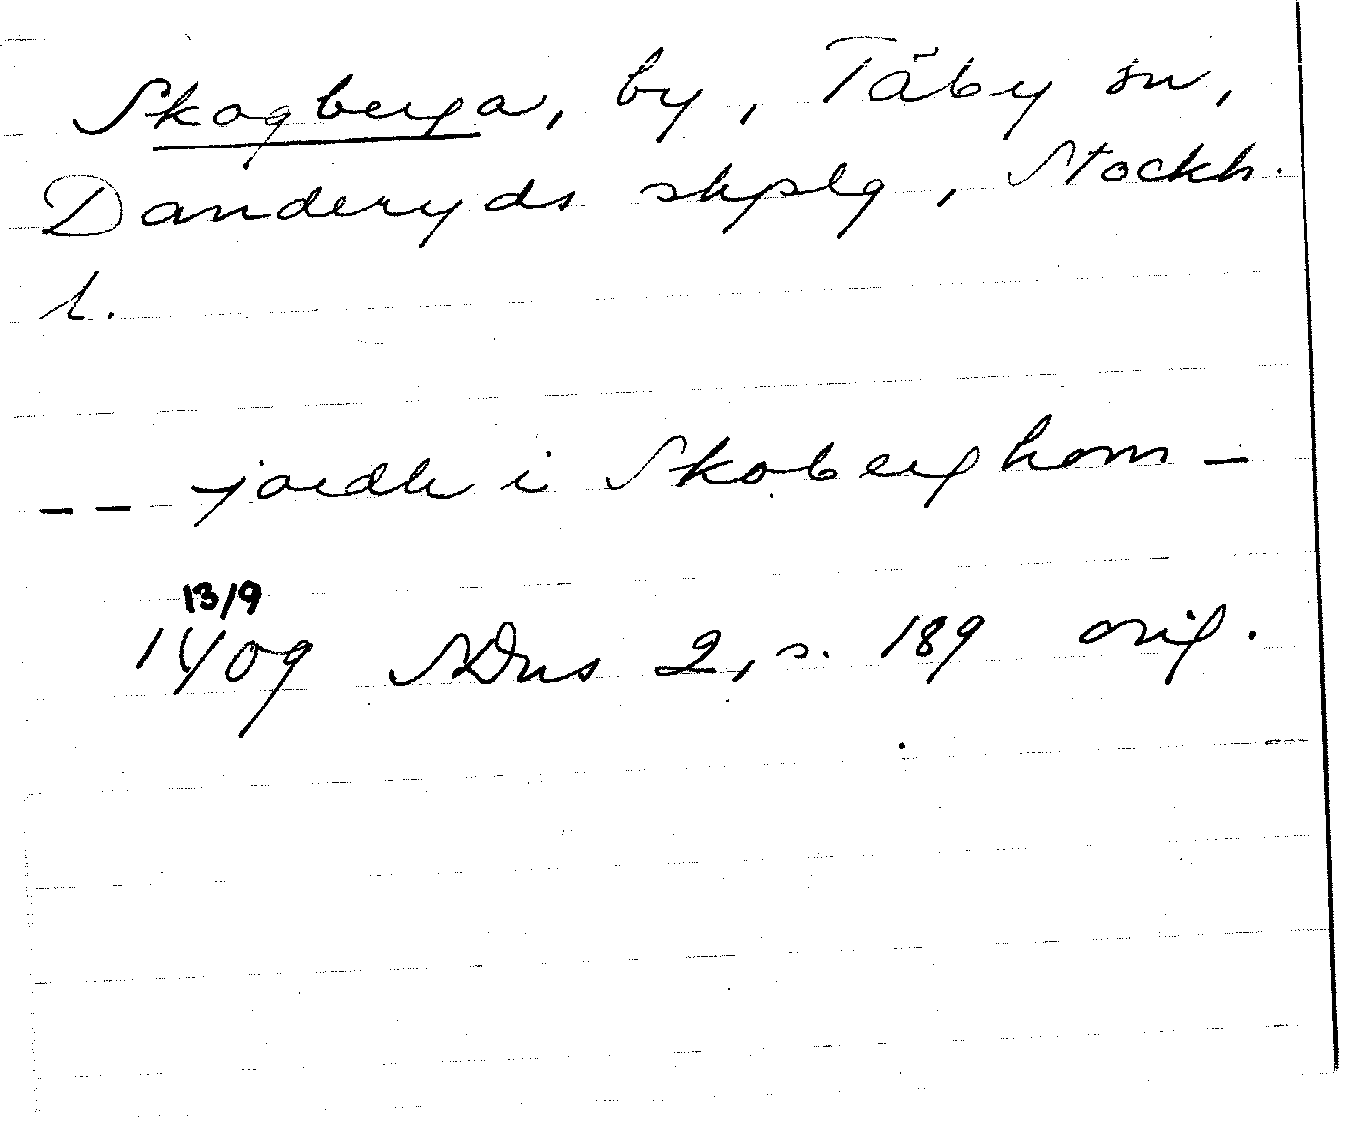 Skogberga, by, Täby sn,
Danderyds skplg, Stockh.
l.
-- jordh i Skoberghom -
13/9
1409 SDns 2, s. 189 orig.